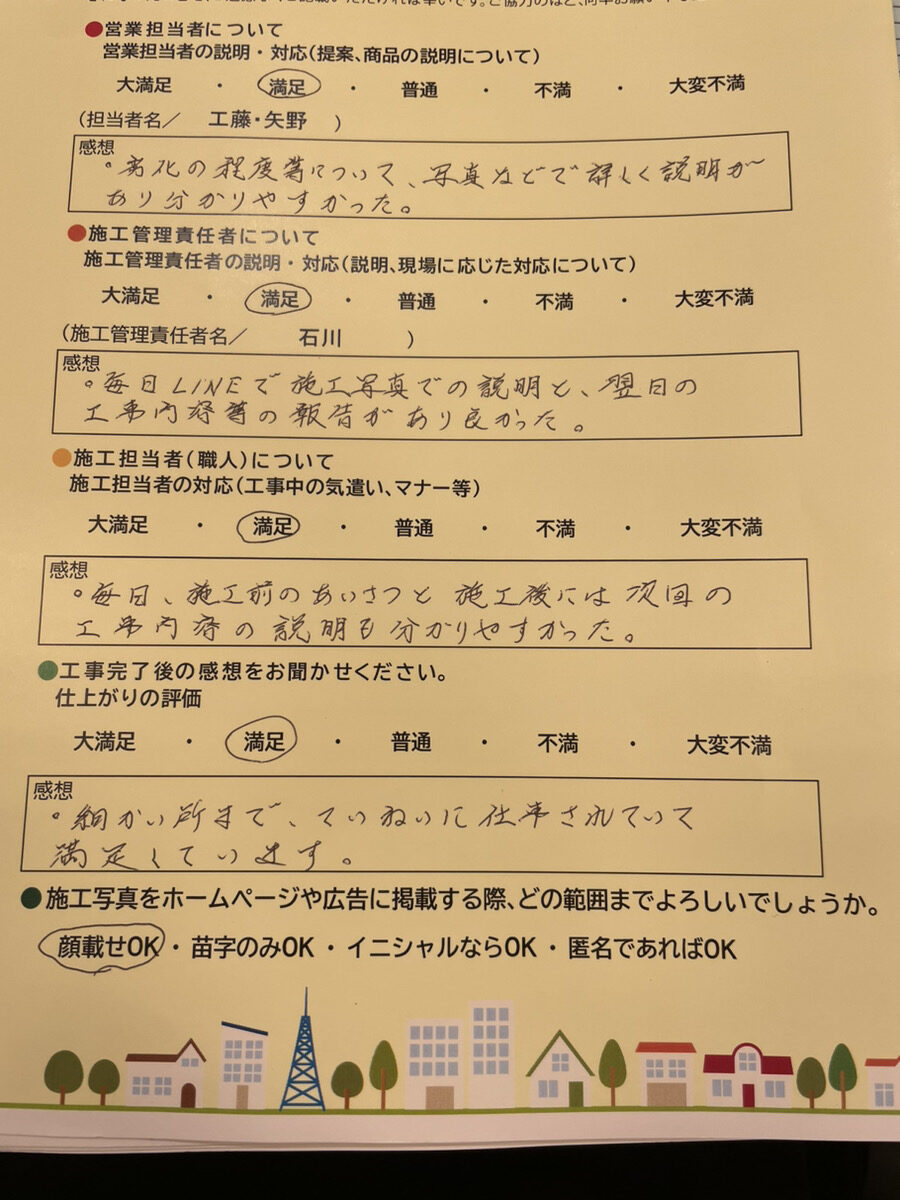 ●営業担当者について
営業担当者の説明・対応(提案、商品の説明について)
大満足 ・ 満足 ・ 普通 ・ 不満 ・ 大変不満
(担当者名/ 工藤・矢野 )
感想
・劣化の程度等について、写真などで詳しく説明が
あり分かりやすかった。
●施工管理責任者について
施工管理責任者の説明・対応(説明、現場に応じた対応について)
大満足 ・ 満足 ・ 普通 ・ 不満 ・ 大変不満
(施工管理責任者名/ 石川 )
感想
・毎日LINEで施工写真での説明と、翌日の
工事内容等の報告があり良かった。
●施工担当者(職人)について
施工担当者の対応(工事中の気遣い、マナー等)
大満足 ・ 満足 ・ 普通 ・ 不満 ・ 大変不満
感想
・毎日、施工前のあいさつと施工後には次回の
工事内容の説明も分かりやすかった。
●工事完了後の感想をお聞かせください。
仕上がりの評価
大満足 ・ 満足 ・ 普通 ・ 不満 ・ 大変不満
感想
・細かい所まで、ていねいに仕事されていて
満足しています。
●施工写真をホームページや広告に掲載する際、どの範囲までよろしいでしょうか。
顔載せOK・苗字のみOK・イニシャルならOK・匿名であればOK